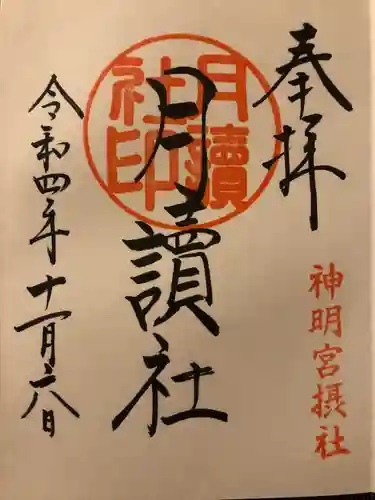 奉拝
神明宮摂社
月讀社印
月讀社
令和四年十一月二八日